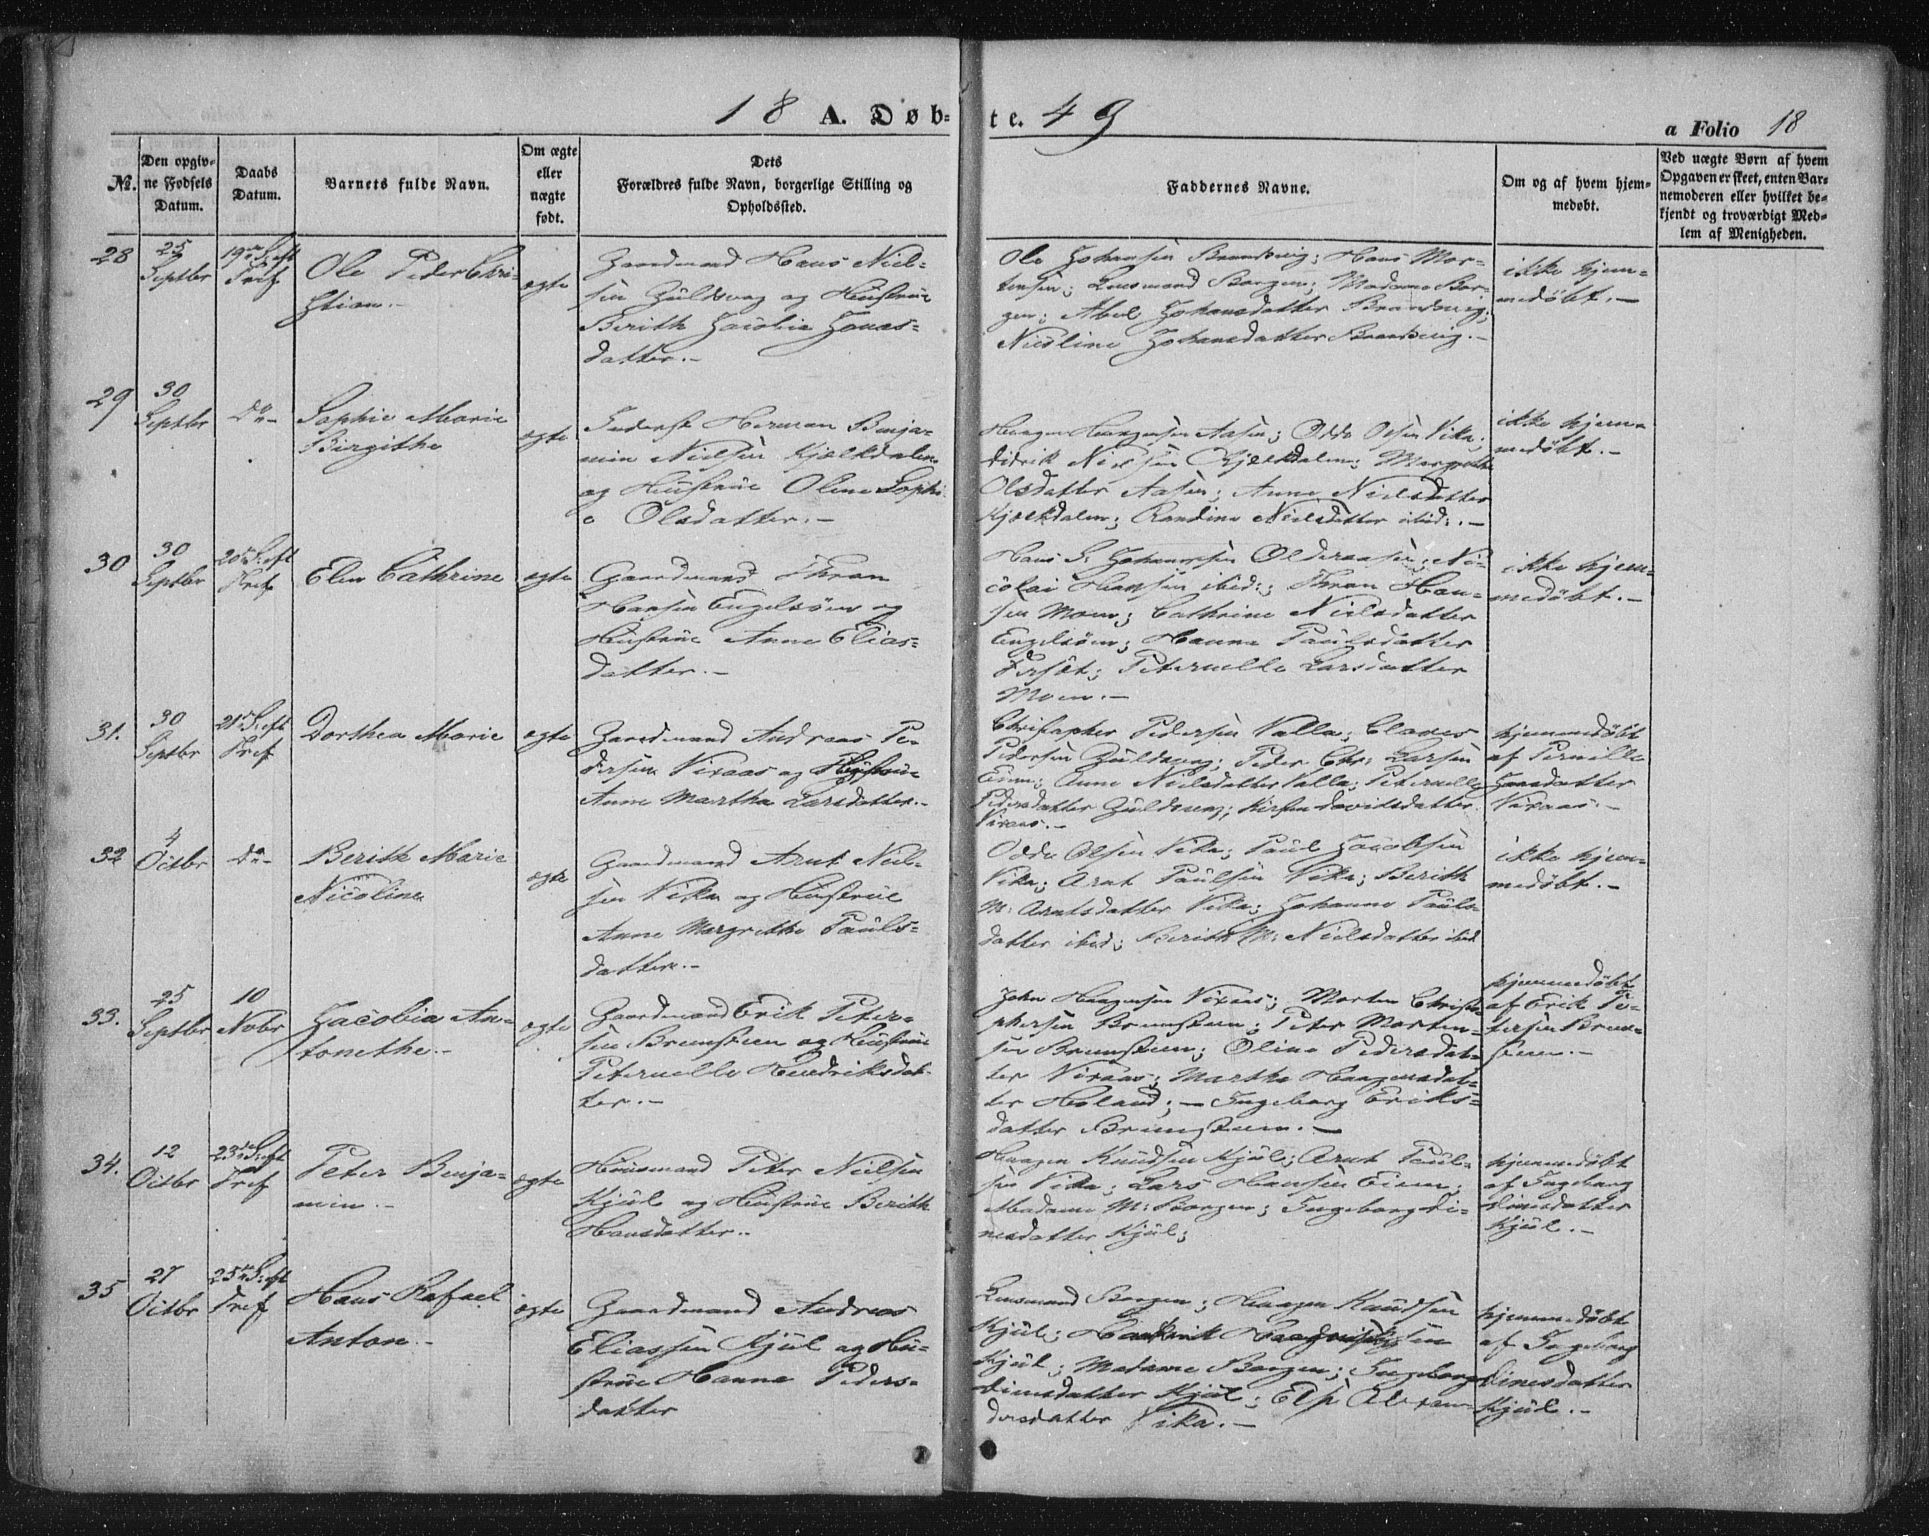 18 A. Døb-te. 49
a Folio 18
No.
Den opgivne Fødsels Datum.
Daabs Datum.
Barnets fulde Navn.
Om ægte eller uægte født.
Dets Forældres fulde Navn, borgerlige Stilling og Opholdssted.
Faddernes Navne.
Om og af hvem hjemmedøbt.
Ved uægte Børn af hvem Opgaven er skeet, enten Barnemoderen eller hvilket bekjendt og troværdigt Medlem af Menigheden.
28
25 Septbr
19de S: eft Tref
Ole Peder Chri-
stian.-
ægte
Gaardmand Hans Niel-
sen Züldsvog og Hustrue
Berith Jacobia Jonas-
datter.-
Ole Johansen Brandvig; Hans Mor-
tensen; Lensmand Borgen; Madame Bor-
gen; Abel Johansdatter Brandvig;
Nicoline Johansdatter Brandvig.-
ikke hjem-
medöbt.-
29
30 Septbr
Do-
Sophie Marie
Birgithe
ægte
Inderst Herman Benja-
min Nielsen Kjelkdalen
og Hustrue Oline Sophi-
e Olsdatter.-
Haagen Haagensen Aasen; Odde Olsen Vika;
Didrik Nielsen Kjelkdalen; Margrethe
Olsdatter Aasen; Anne Nielsdatter
Kjelkdalen; Randine Nielsdatter ibid:.-
ikke hjem-
medöbt.-
30
30 Septbr
20de S: eft Tref
Elen Cathrine
ægte
Gaardmand Thran
Hansen Engelsöen og
Hustrue Anne Elias-
datter.-
Hans S. Johannesen Olderaasen; Ni-
colai Hansen ibid:; Thran Han-
sen Moen; Cathrine Nielsdatter
Engelsöen; Hanna Paulsdatter
Forsæt; Peternelle Larsdatter
Moen.-
ikke hjem-
medöbt.-
31.
30 Septbr
21de S: eft Tref
Dorthea Marie
ægte
Gaardmand Andreas Pe-
dersen Viraas og Hustrue
Anne Martha Larsdatter.-
Christopher Pedersen Valla; Claves
Pedersen Züldsvog; Peder Chr: Larsen
Enen; Anne Nielsdatter Valla; Peternelle
Pedersdatter Züldsvog; Kirsten Davidsdatter
Viraas.-
hjemmedöbt
af Pernille
Hansdatter
Viraas.-
32
4 Octbr
Do-
Berith Marie
Nicoline
ægte
Gaardmand Arnt Niel-
sen Vika og Hustrue
Anne Margrethe Pauls-
datter.-
Odde Olsen Vika; Paul Jacobsen
Vika; Arnt Paulsen Vika; Berith
M: Arntsdatter Vika; Johanne Pauls-
datter ibid; Berith M: Nielsdatter ibid
ikke hjem-
medöbt.-
33.
25 Septbr
10 Nobr
Jacobia An-
tonethe.-
ægte
Gaardmand Erik Peter-
sen Brunsteen og Hustrue
Peternelle Hendriksdat-
ter.-
John Haagensen Viraas; Morten Christo-
phersen Brunsteen; Peter Morten-
sen Brunsteen; Oline Pedersdat-
ter Viraas; Martha Haagensdat-
ter Høland; - Ingeborg Eriks-
datter Brunsteen.-
hjemmedöbt
af Erik Pe-
tersen Brun-
steen.-
34.
12 Octbr
23de S: eft Tref
Peter Benja-
min.-
ægte
Huusmand Peter Nielsen
Kjül og Hustrue Berith
Hansdatter..
Haagen Knudsen Kjül; Arnt Paul-
sen Vika; Lars Hansen Einen;
Madame M: Borgen; Ingeborg Di-
nesdatter Kjül;
hjemmedöbt
af Ingeborg
Dinesdatter
Kjül.-
35
27 Octbr
25de S: eft Tref
Hans Rafael
Anton.-
ægte
Gaardmand Andreas
Eliassen Kjül og Hu-
strue Hanna Peders-
datter
Lensmand Borgen; Haagen Knudsen
Kjül;
Kjül; Madame Borgen; Ingeborg
Dinesdatter Kjül; Elsi Alexan-
dersdatter Vika.-
hjemmedöbt
af Ingeborg
Dinesdatter
Kjül.-